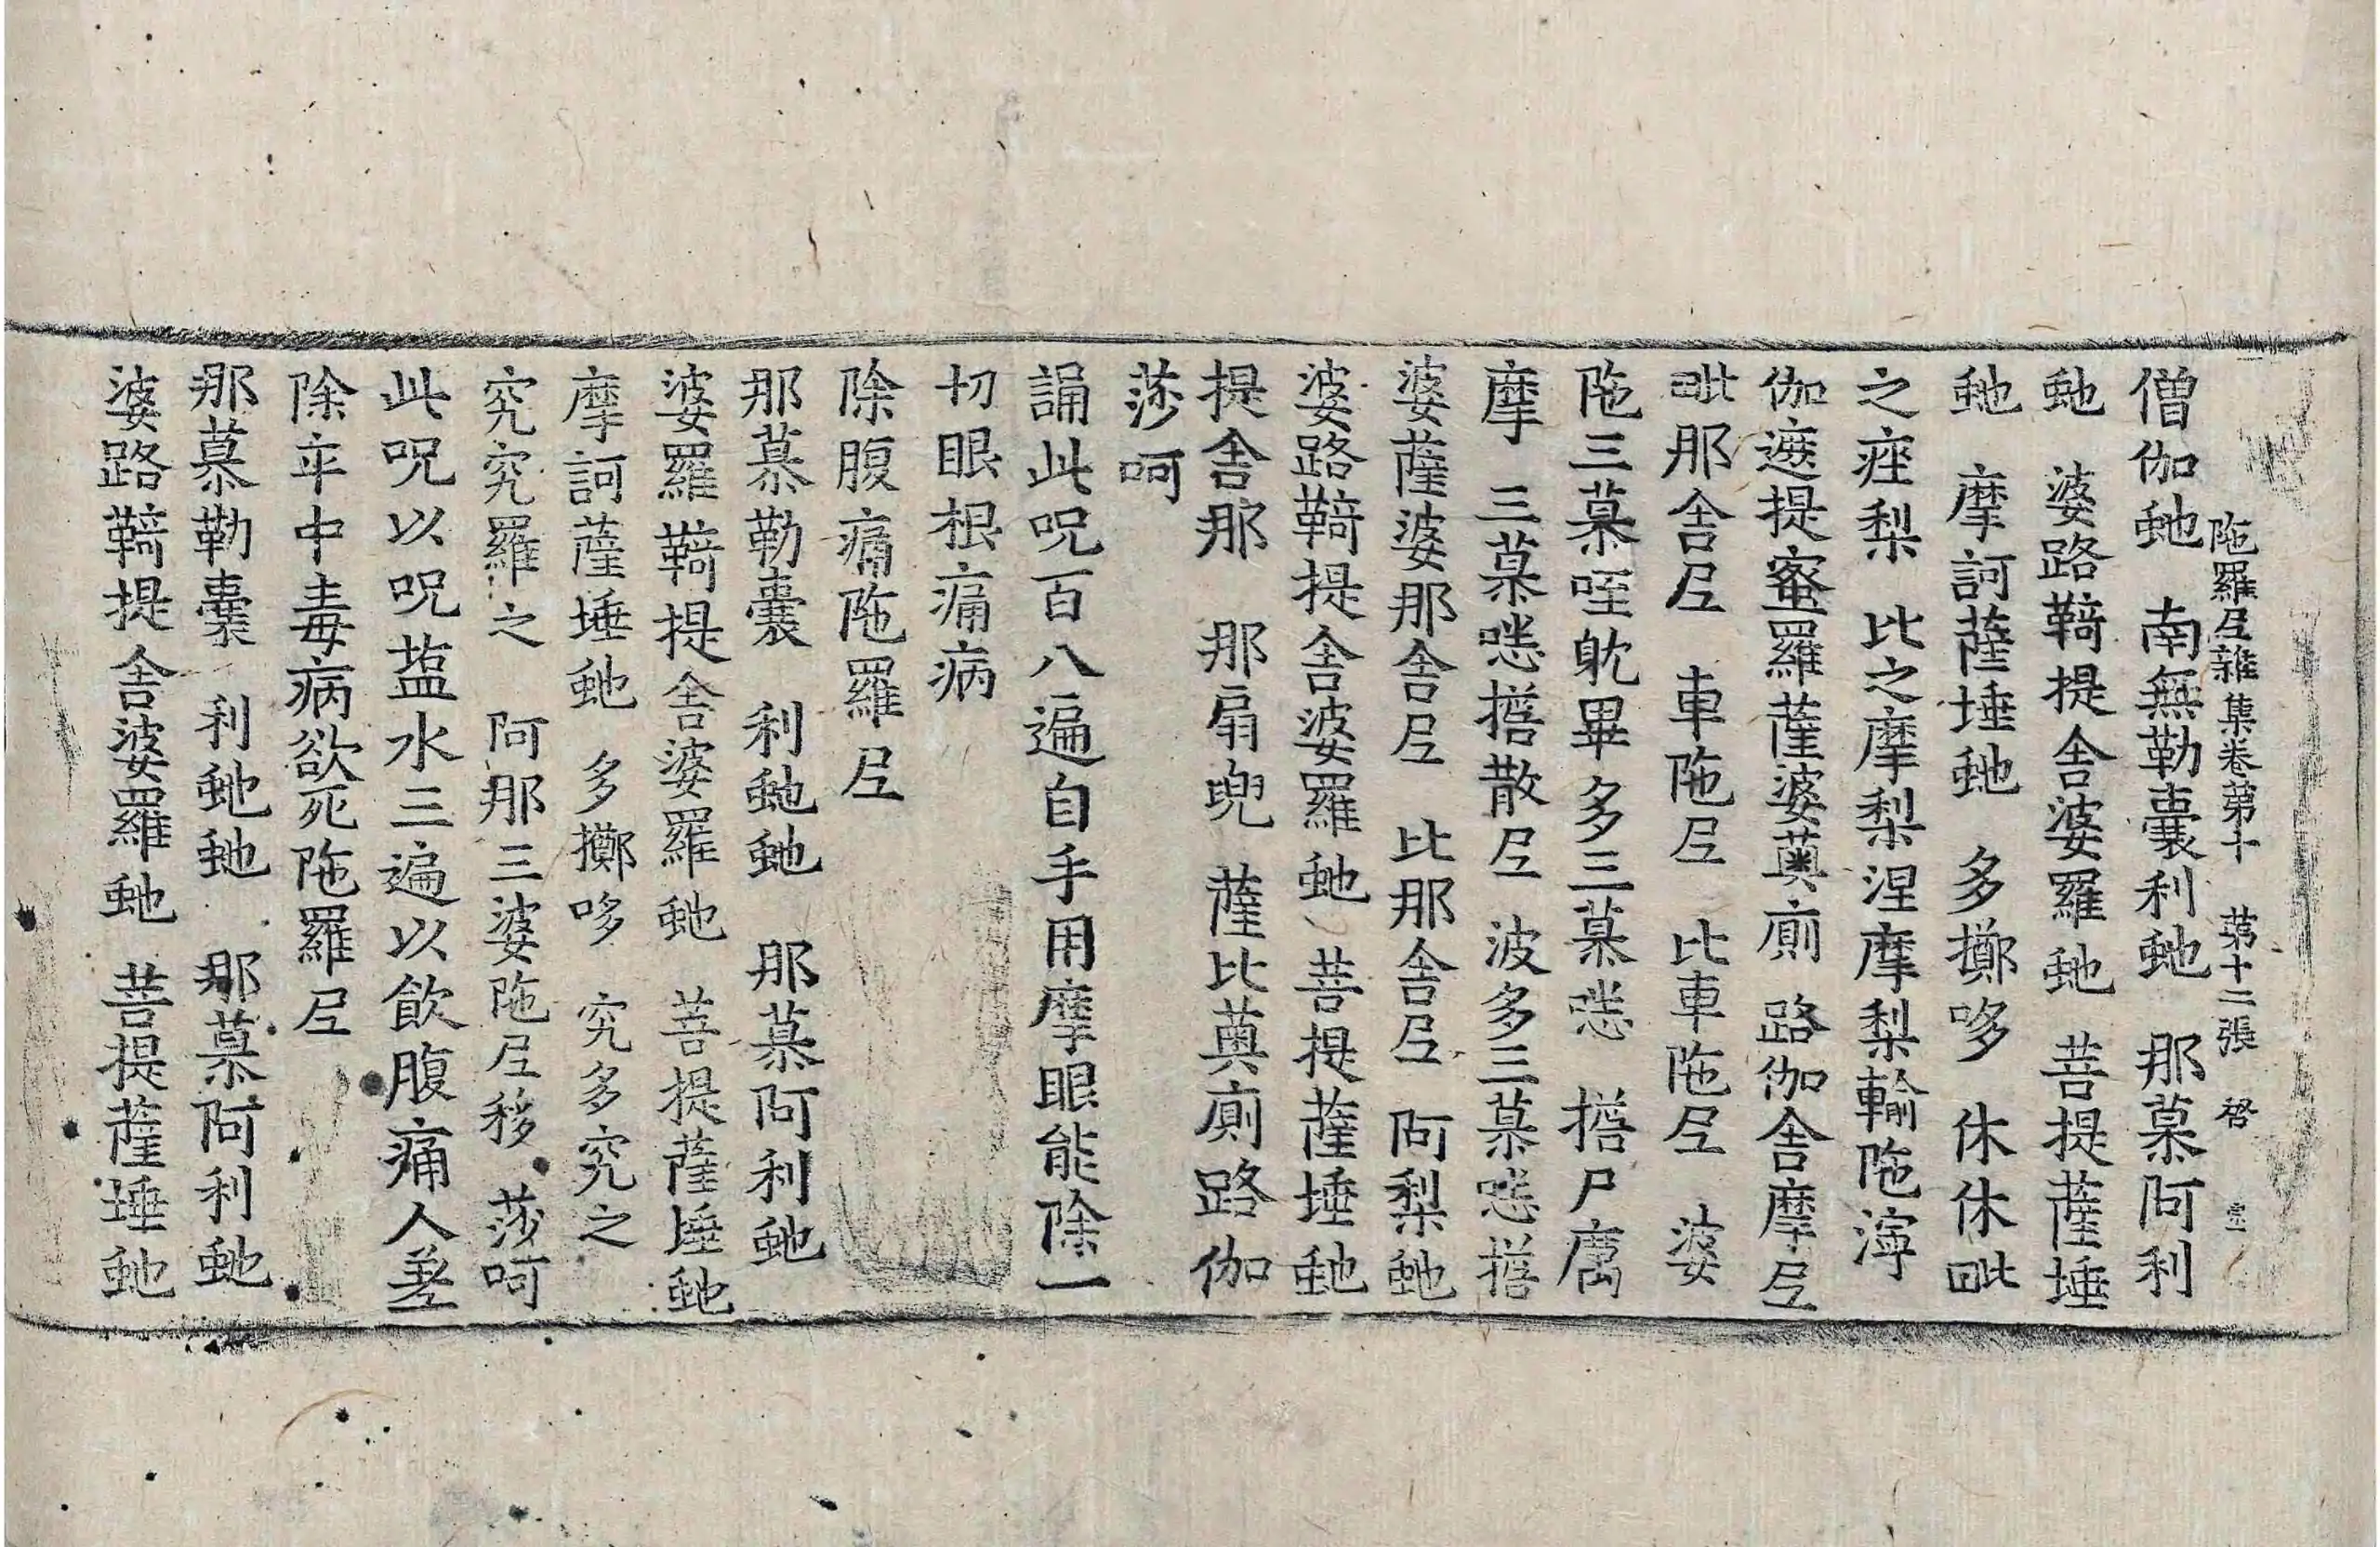 陁羅尼雜集卷第十　第十二張　啓
僧伽虵　南無勒囊利虵　那慕阿利
虵　婆路鞳提舍婆羅虵　菩提薩埵
虵　摩訶薩埵虵　多擲哆　休休毗
之痤梨　比之摩梨涅摩梨輸陁濘
伽遮提蜜羅薩婆薁廁　路伽舍摩尼
毗那舍尼　車陁尼　比車陁尼　婆
陁三慕咥躭畢多三慕嘥　㨜尸厲
摩　三慕嘥㨜散尼　波多三慕嘥㨜
婆薩婆那舍尼　比那舍尼　阿梨虵
婆路鞳提舍婆羅虵　菩提薩埵虵
提舍那　那扇兜　薩比薁廁路伽
莎呵
誦此呪百八遍自手用摩眼能除一
切眼根痛病
除腹痛陁羅尼
那慕勒囊　利虵虵　那慕阿利虵
婆羅鞳提舍婆羅虵　菩提薩埵虵
摩訶薩埵虵　多擲哆　究多究之
究究羅之　阿那三婆陁尼移　莎呵
此呪以呪塩水三遍以飲腹痛人差
除卒中毒病欲死陁羅尼
那慕勒囊　利虵虵　那慕阿利虵
婆路鞳提舍婆羅虵　菩提薩埵虵